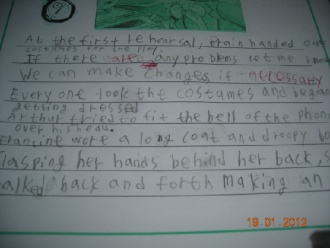 2
At the first rehearsal, Erain handed ou
costumes for the play.
If there are any problems let me know
We can make changes if neccossary
Every one took the costumes and began
getting dressed
Arthur tried to fit the bell of the phone
over his head.
Francine wore a long coat and droopy
lasping her hands behind her back, s
alked back and forth making an
19.01.2013